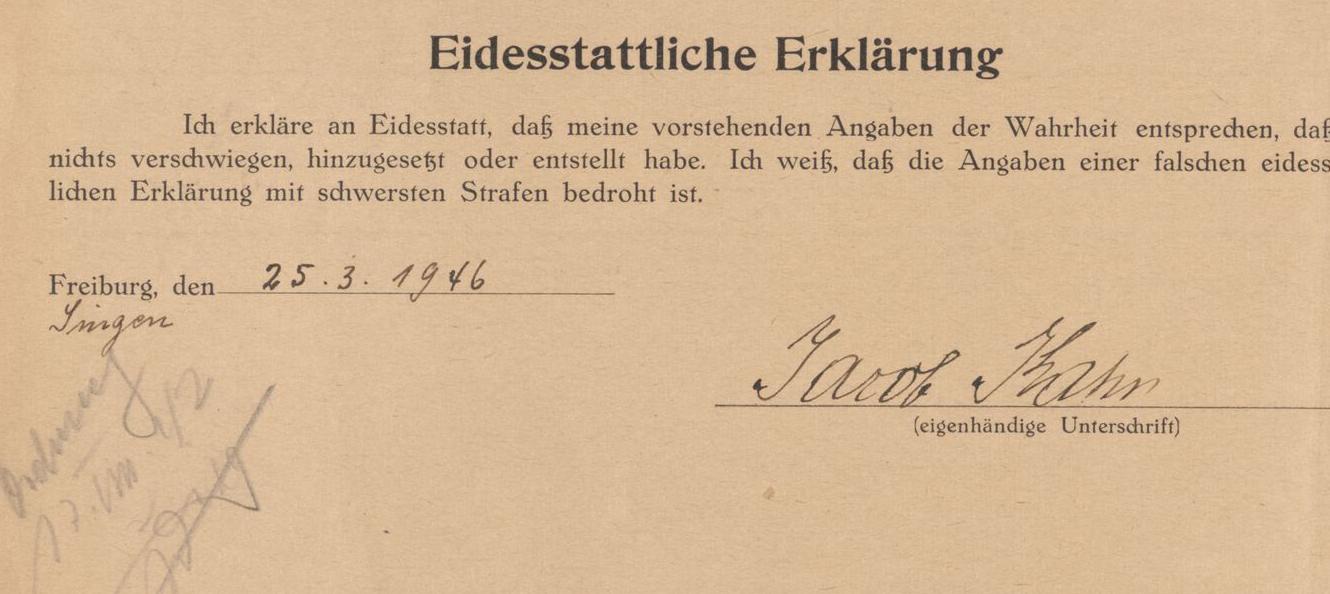 Eidesstattliche Erklärung
Ich erkläre an Eidesstatt, daß meine vorstehenden Angaben der Wahrheit entsprechen, daß
nichts verschwiegen, hinzugesetzt oder entstellt habe. Ich weiß, daß die Angaben einer falschen eidess
lichen Erklärung mit schwersten Strafen bedroht ist.
Freiburg, den 25.3.1946
Singen
Jacob Kahn
(eigenhändige Unterschrift)